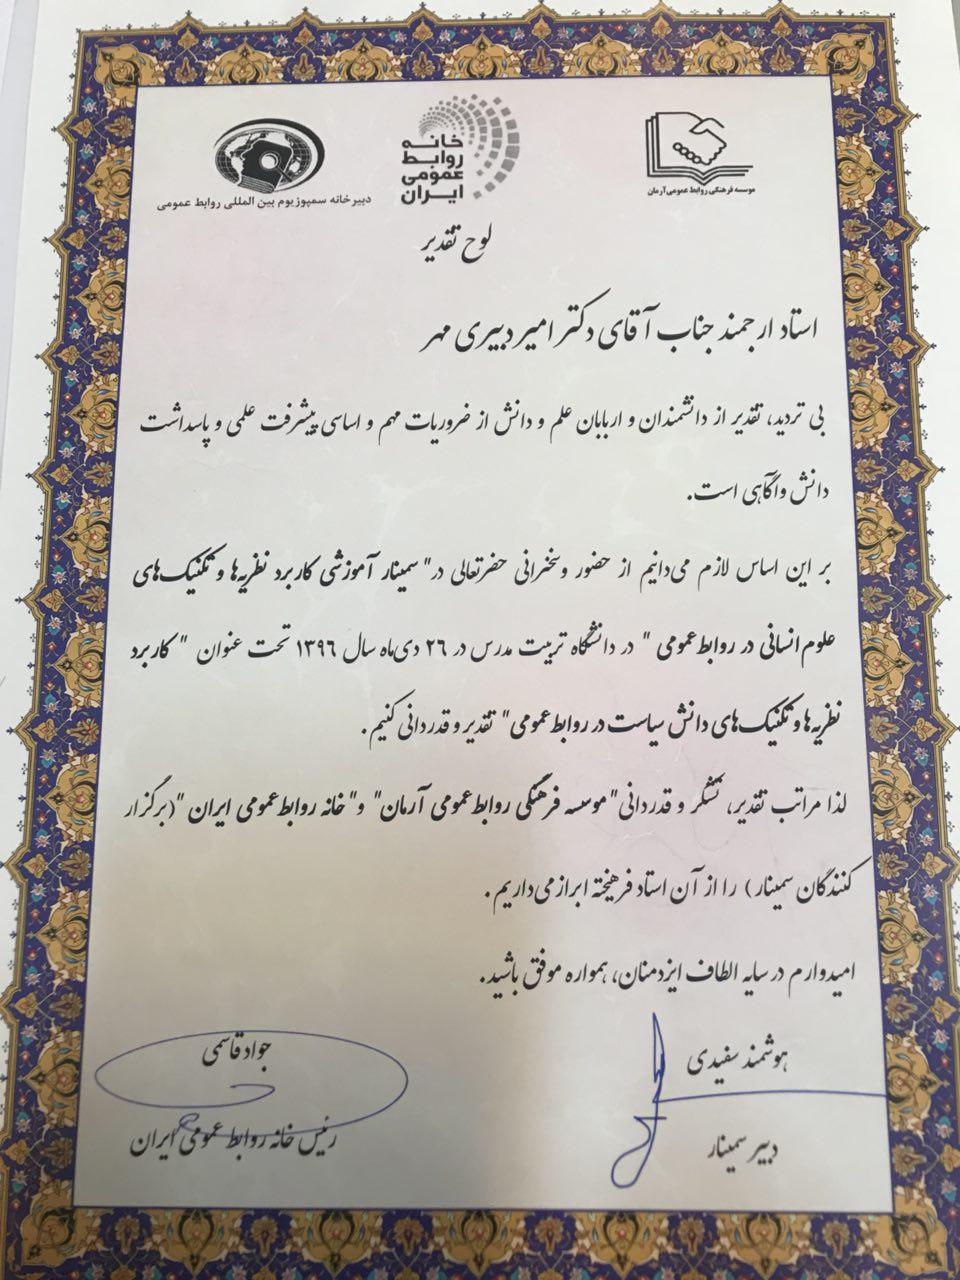 موسسه فرهنگی روابط عمومی آرمان
خانه
روابط
عمومی
ایران
دبیرخانه سمپوزیوم بین المللی روابط عمومی
لوح تقدیر
استاد ارجمند جناب آقای دکتر امیر دبیری مهر
بی تردید، تقدیر از دانشمندان و اربابان علم و دانش از ضروریات مهم و اساسی پیشرفت علمی و پاسداشت
دانش وآگاهی است.
بر این اساس لازم می‌دانیم از حضور وسخنرانی حضرتعالی در" سمینار آموزشی کاربرد نظریه‌ها و تکنیک‌های
علوم انسانی در روابط عمومی " در دانشگاه تربیت مدرس در ۲۶ دی‌ماه سال ۱۳۹۶ تحت عنوان " کاربرد
نظریه‌ها و تکنیک‌های دانش سیاست در روابط عمومی" تقدیر و قدردانی کنیم.
لذا مراتب تقدیر، تشکر و قدردانی "موسسه فرهنگی روابط عمومی آرمان" و "خانه روابط عمومی ایران "(برگزار
کنندگان سمینار) را از آن استاد فرهیخته ابراز می‌داریم.
امیدوارم در سایه الطاف ایزدمنان، همواره موفق باشید.
هوشمند سفیدی
دبیر سمینار
جواد قاسمی
رئیس خانه روابط عمومی ایران